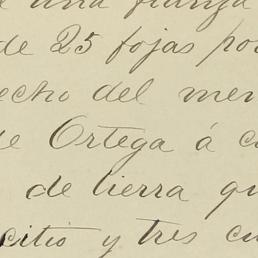 una
de 25 fojas po
echo del mer
de Ortega á c
de tierra qu
citio y tres cu